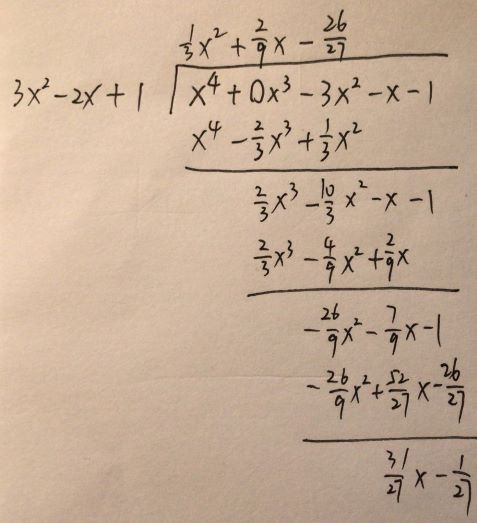 1/3 x² + 2/9 x - 26/27
3x² - 2x + 1 ) x⁴ + 0x³ - 3x² - x - 1
x⁴ - 2/3 x³ + 1/3 x²
2/3 x³ - 10/3 x² - x - 1
2/3 x³ - 4/9 x² + 2/9 x
- 26/9 x² - 7/9 x - 1
- 26/9 x² + 52/27 x - 26/27
31/27 x - 1/27